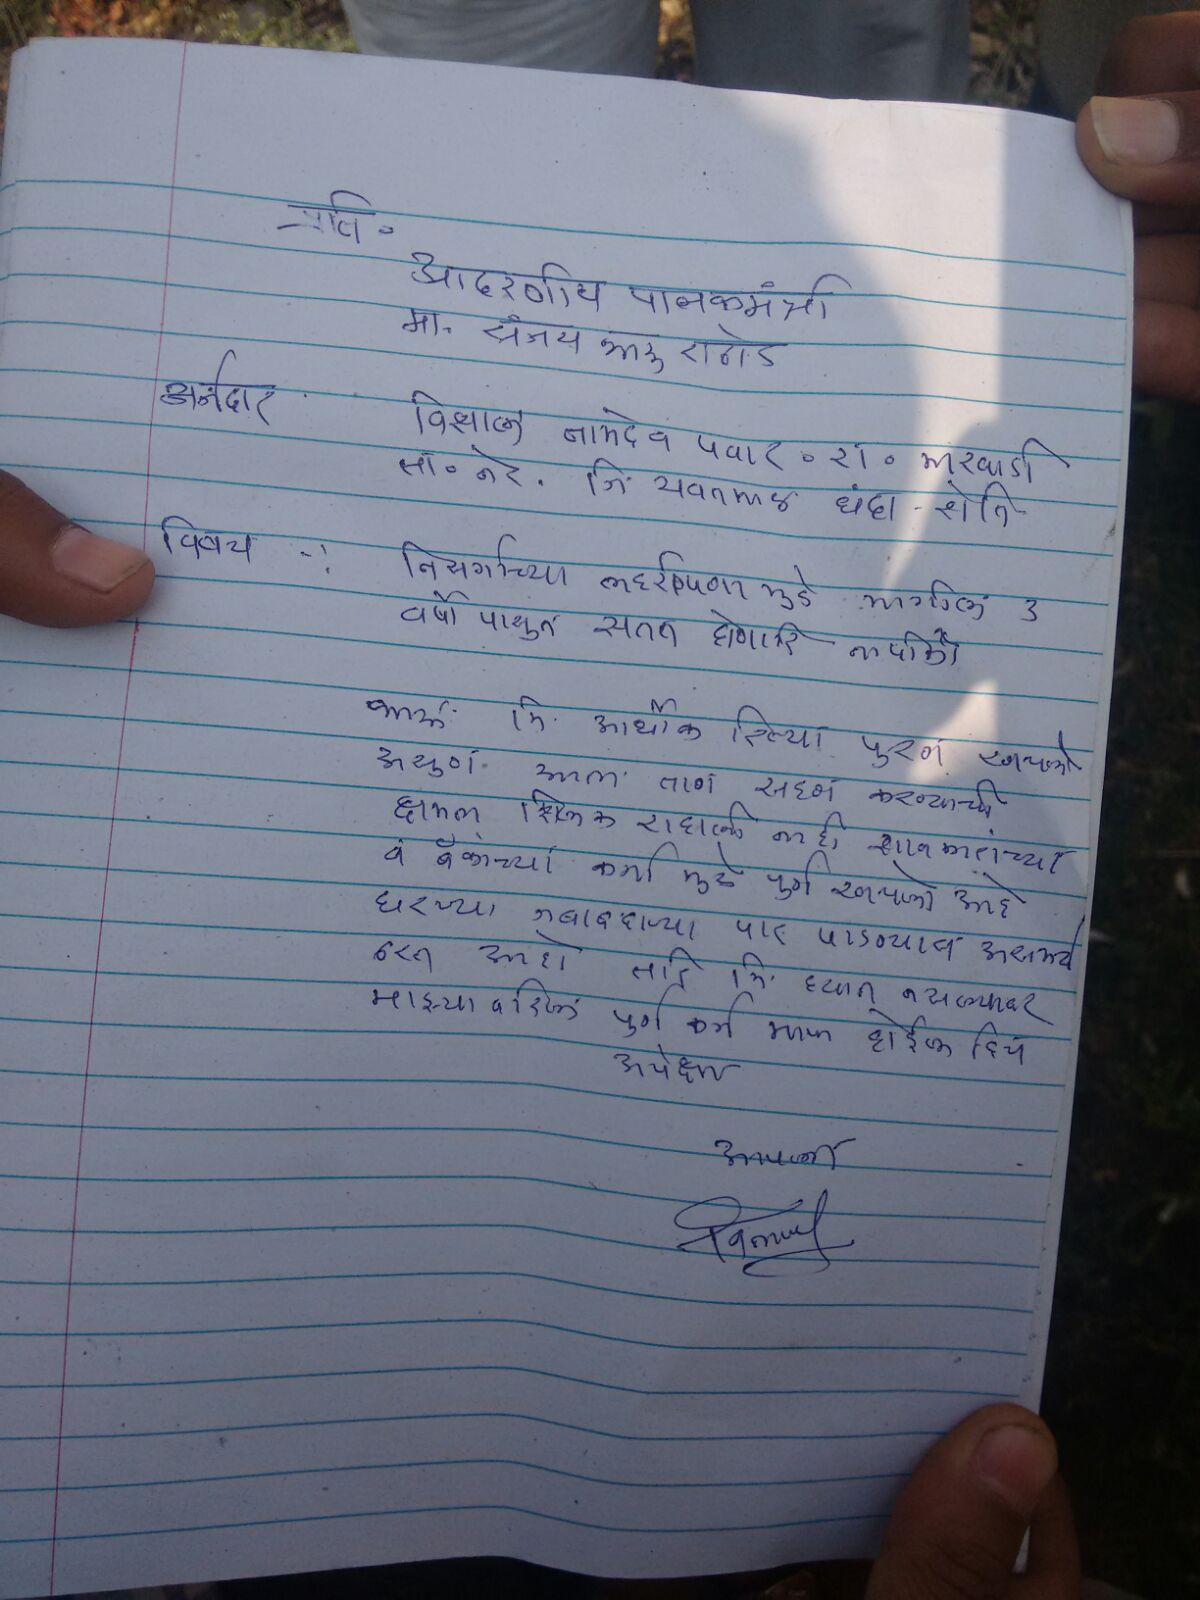 प्रति.
आदरणीय पालकमंत्री
मा. संजय भाऊ राठोड
अर्जदार
विशाल नामदेव पवार. रा. मारवाडी
ता. नेर. जि यवतमाळ धंदा - शेति
विषय -:
निसर्गाच्या लहरीपणा मुळे मागील 3
वर्षा पासुन सतत होणारि नापीकी
भाऊ मि आर्थीक स्थित्या पुरण खचलो
असुन आता ताण सहन करण्याची
क्षमता शिल्लक राहाली नाही सावकारांच्या
व बँकांच्या कर्जा मुळे पुर्ण खचलो आहे
घरच्या जबाबदाऱ्या पार पाडण्यास असमर्थ
ठरत आहो तरि मि हयात नसल्यावर
माझ्या वडिल पुर्ण कर्ज माफ होईल हिच
अपेक्षा
आपला